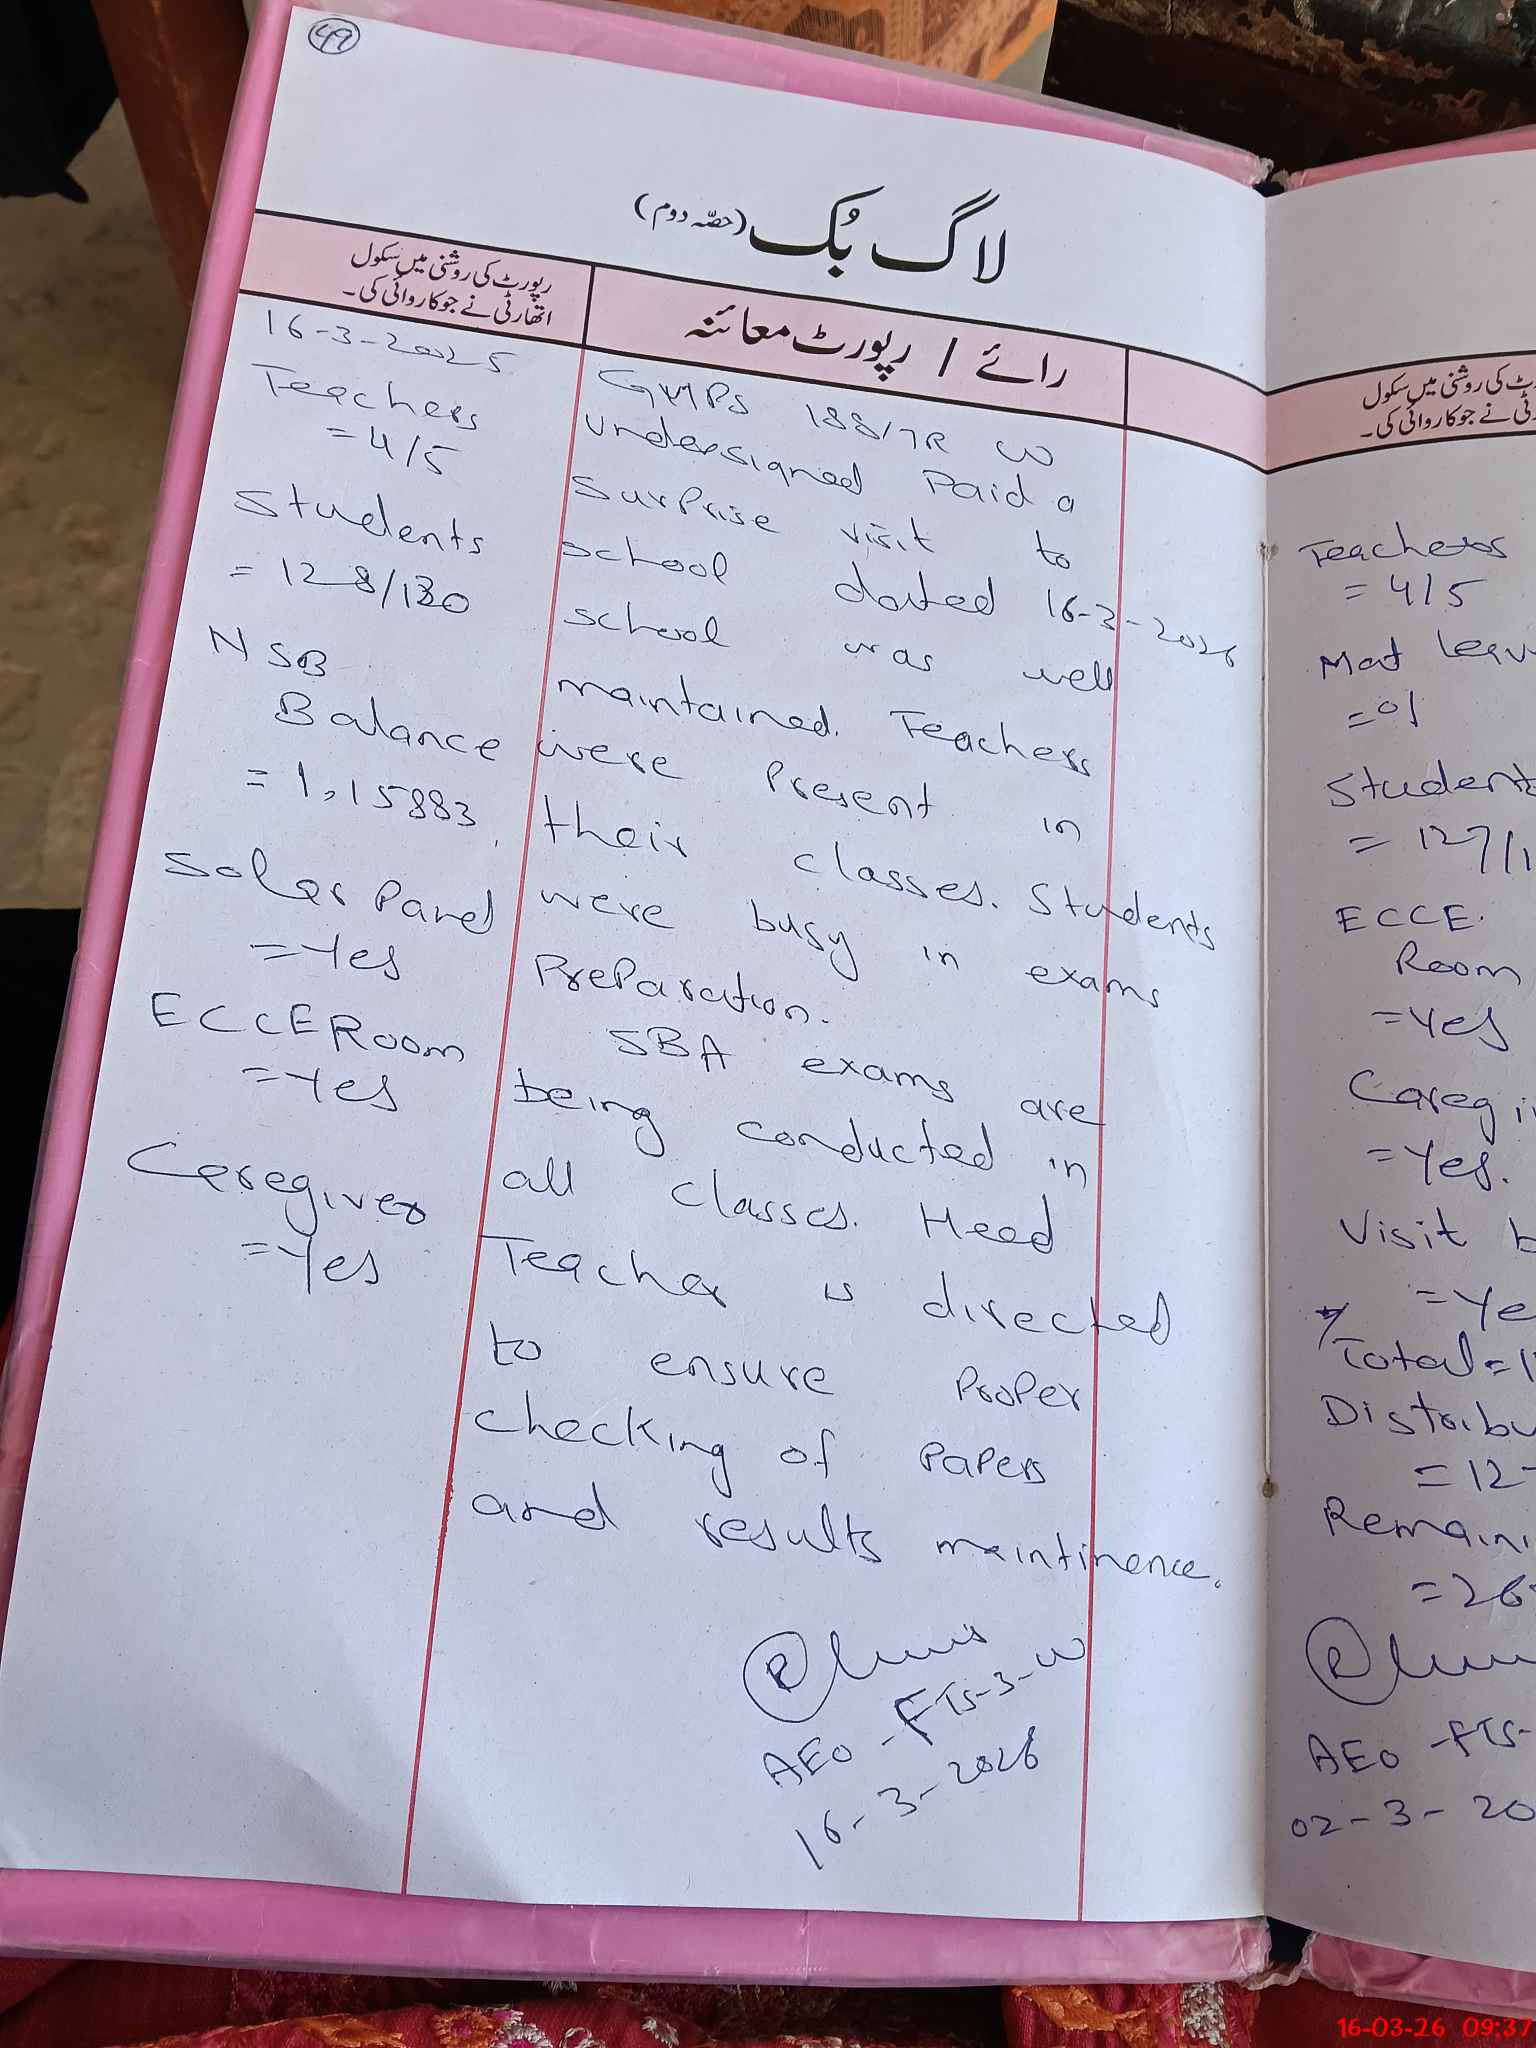 49
لاگ بُک (حصّہ دوم)
رپورٹ کی روشنی میں سکول
اتھارٹی نے جو کاروائی کی۔
رائے / رپورٹ معائنہ
16-3-2025
Teachers
= 4/5
Students
= 128/130
NSB
Balance
= 1,15883
Solar Panel
= Yes
ECCE Room
= Yes
Caregiver
= Yes
GMPS 188/7R W
undersigned Paid a
surprise visit to
school dated 16-3-2026
school was well
maintained. Teachers
were Present in
their classes. Students
were busy in exams
PrePararation.
SBA exams are
being conducted in
all classes. Head
Teacher is directed
to ensure ProPer
checking of PaPers
and results maintinence.
AEO - FTS-3-W
16-3-2026
رٹ کی روشنی میں سکول
رٹی نے جو کاروائی کی۔
Teachers
= 4/5
Mat leav
= 01
Student
= 127/1
ECCE.
Room
= Yes
Caregi
= Yes.
Visit b
= Ye
Total = 1
Distribu
= 12
Remaini
= 26
AEO - FTS-
02-3-20
16-03-26 09:37